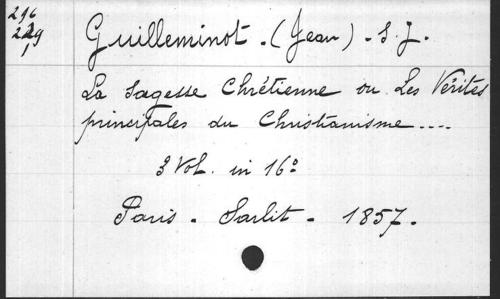 216
229
1
Guilleminot. (Jean). S. J.
La Sagesse Chrétienne ou Les Vérités
principales du Christianisme ....
3 Vol. in 16°
Paris. Sarlit. 1857.